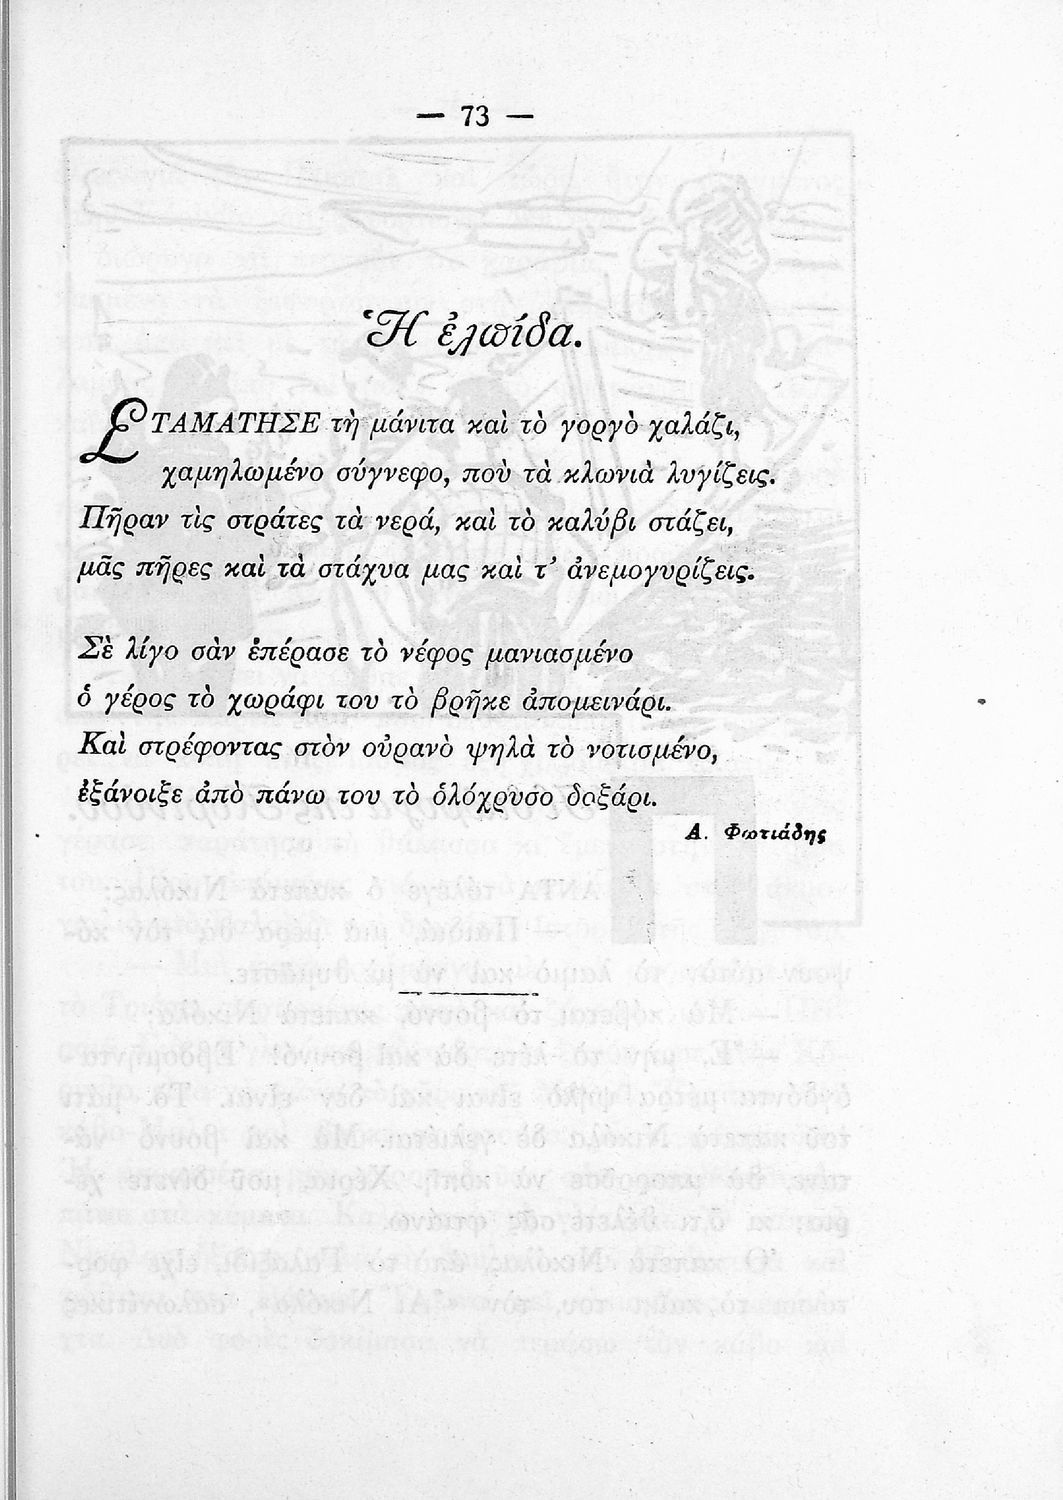 — 73 —
Ἡ ἐλπίδα.
ΣΤΑΜΑΤΗΣΕ τὴ μάνιτα καὶ τὸ γοργὸ χαλάζι,
χαμηλωμένο σύγνεφο, ποὺ τὰ κλωνιὰ λυγίζεις.
Πῆραν τὶς στράτες τὰ νερά, καὶ τὸ καλύβι στάζει,
μᾶς πῆρες καὶ τὰ στάχυα μας καὶ τ' ἀνεμογυρίζεις.
Σὲ λίγο σὰν ἐπέρασε τὸ νέφος μανιασμένο
ὁ γέρος τὸ χωράφι του τὸ βρῆκε ἀπομεινάρι.
Καὶ στρέφοντας στὸν οὐρανὸ ψηλὰ τὸ νοτισμένο,
ἐξάνοιξε ἀπὸ πάνω του τὸ ὁλόχρυσο δοξάρι.
Α. Φωτιάδης